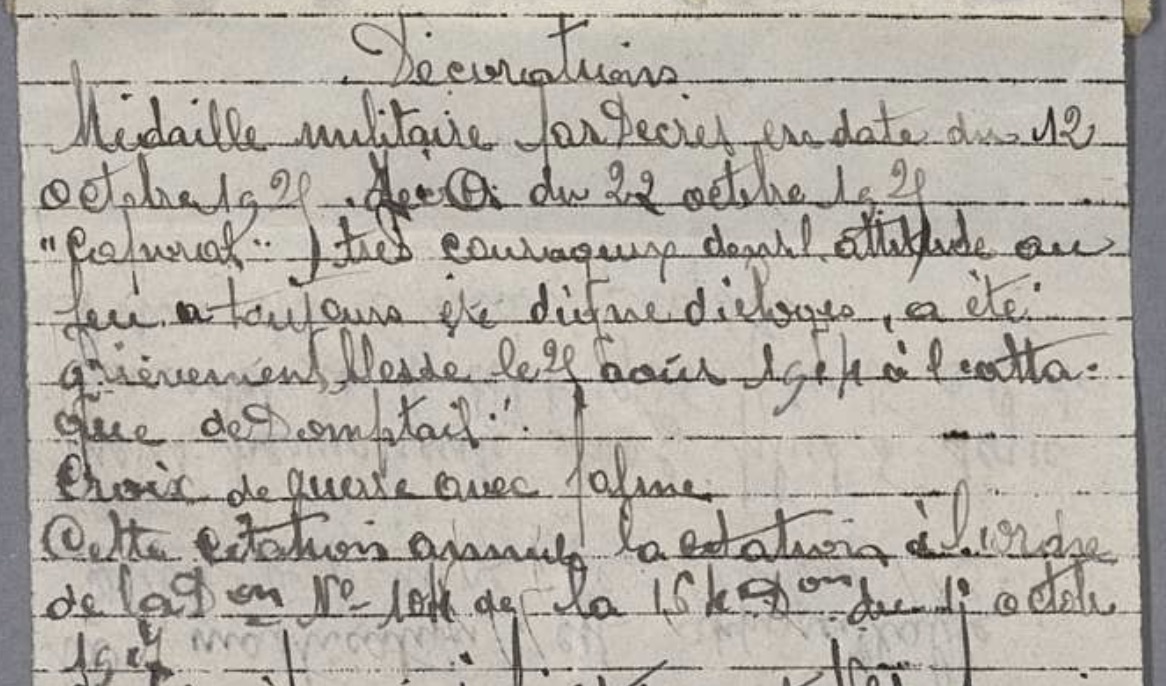 Décorations
Médaille militaire par Decret en date du 12
octobre 1925. du 22 octobre 1925
"Caporal" très courageux dont l'attitude au
feu a toujours été digne d'eloges, a été
grièvement blessé le 25 août 1914 à l'atta-
que de Domptail".
Croix de guerre avec palme
Cette citation annule la citation à l'ordre
de la Don No 104 de la 164 Don du 1er octobre